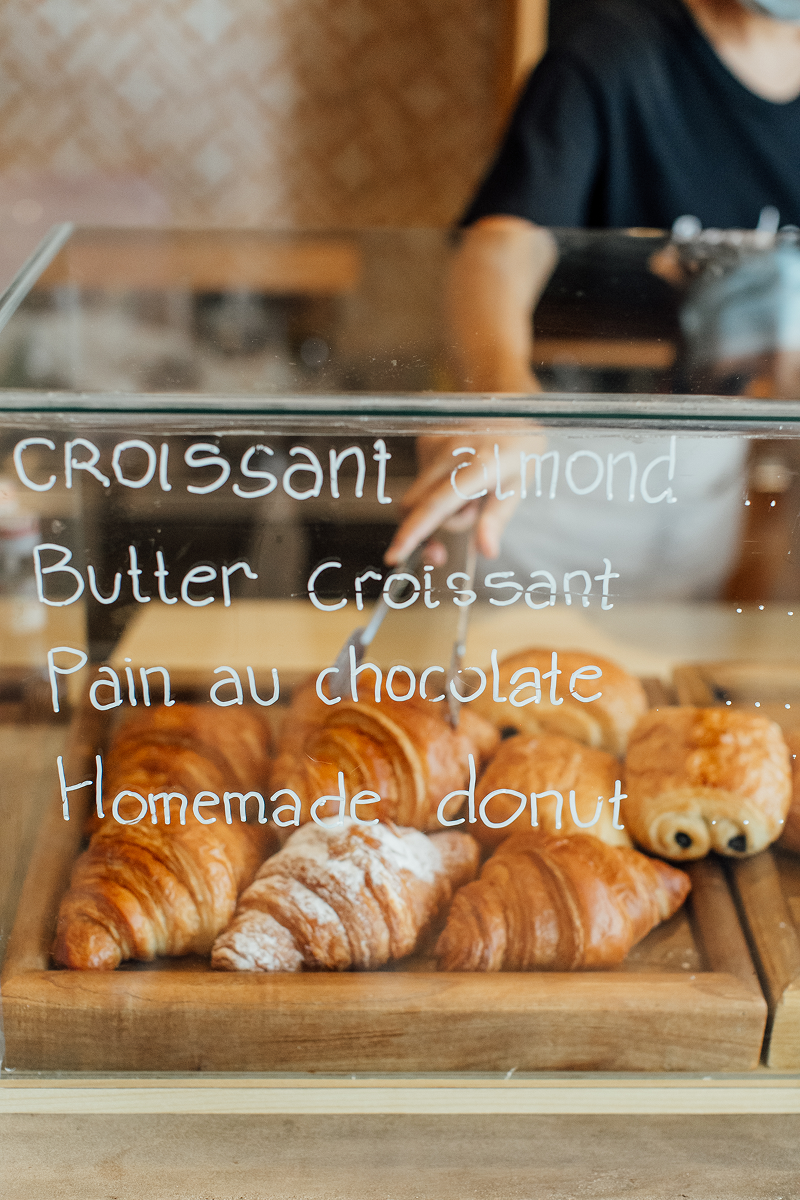 CROISSant almond ..
Butter Croissant ....
Pain au chocolate ....
Homemade donut